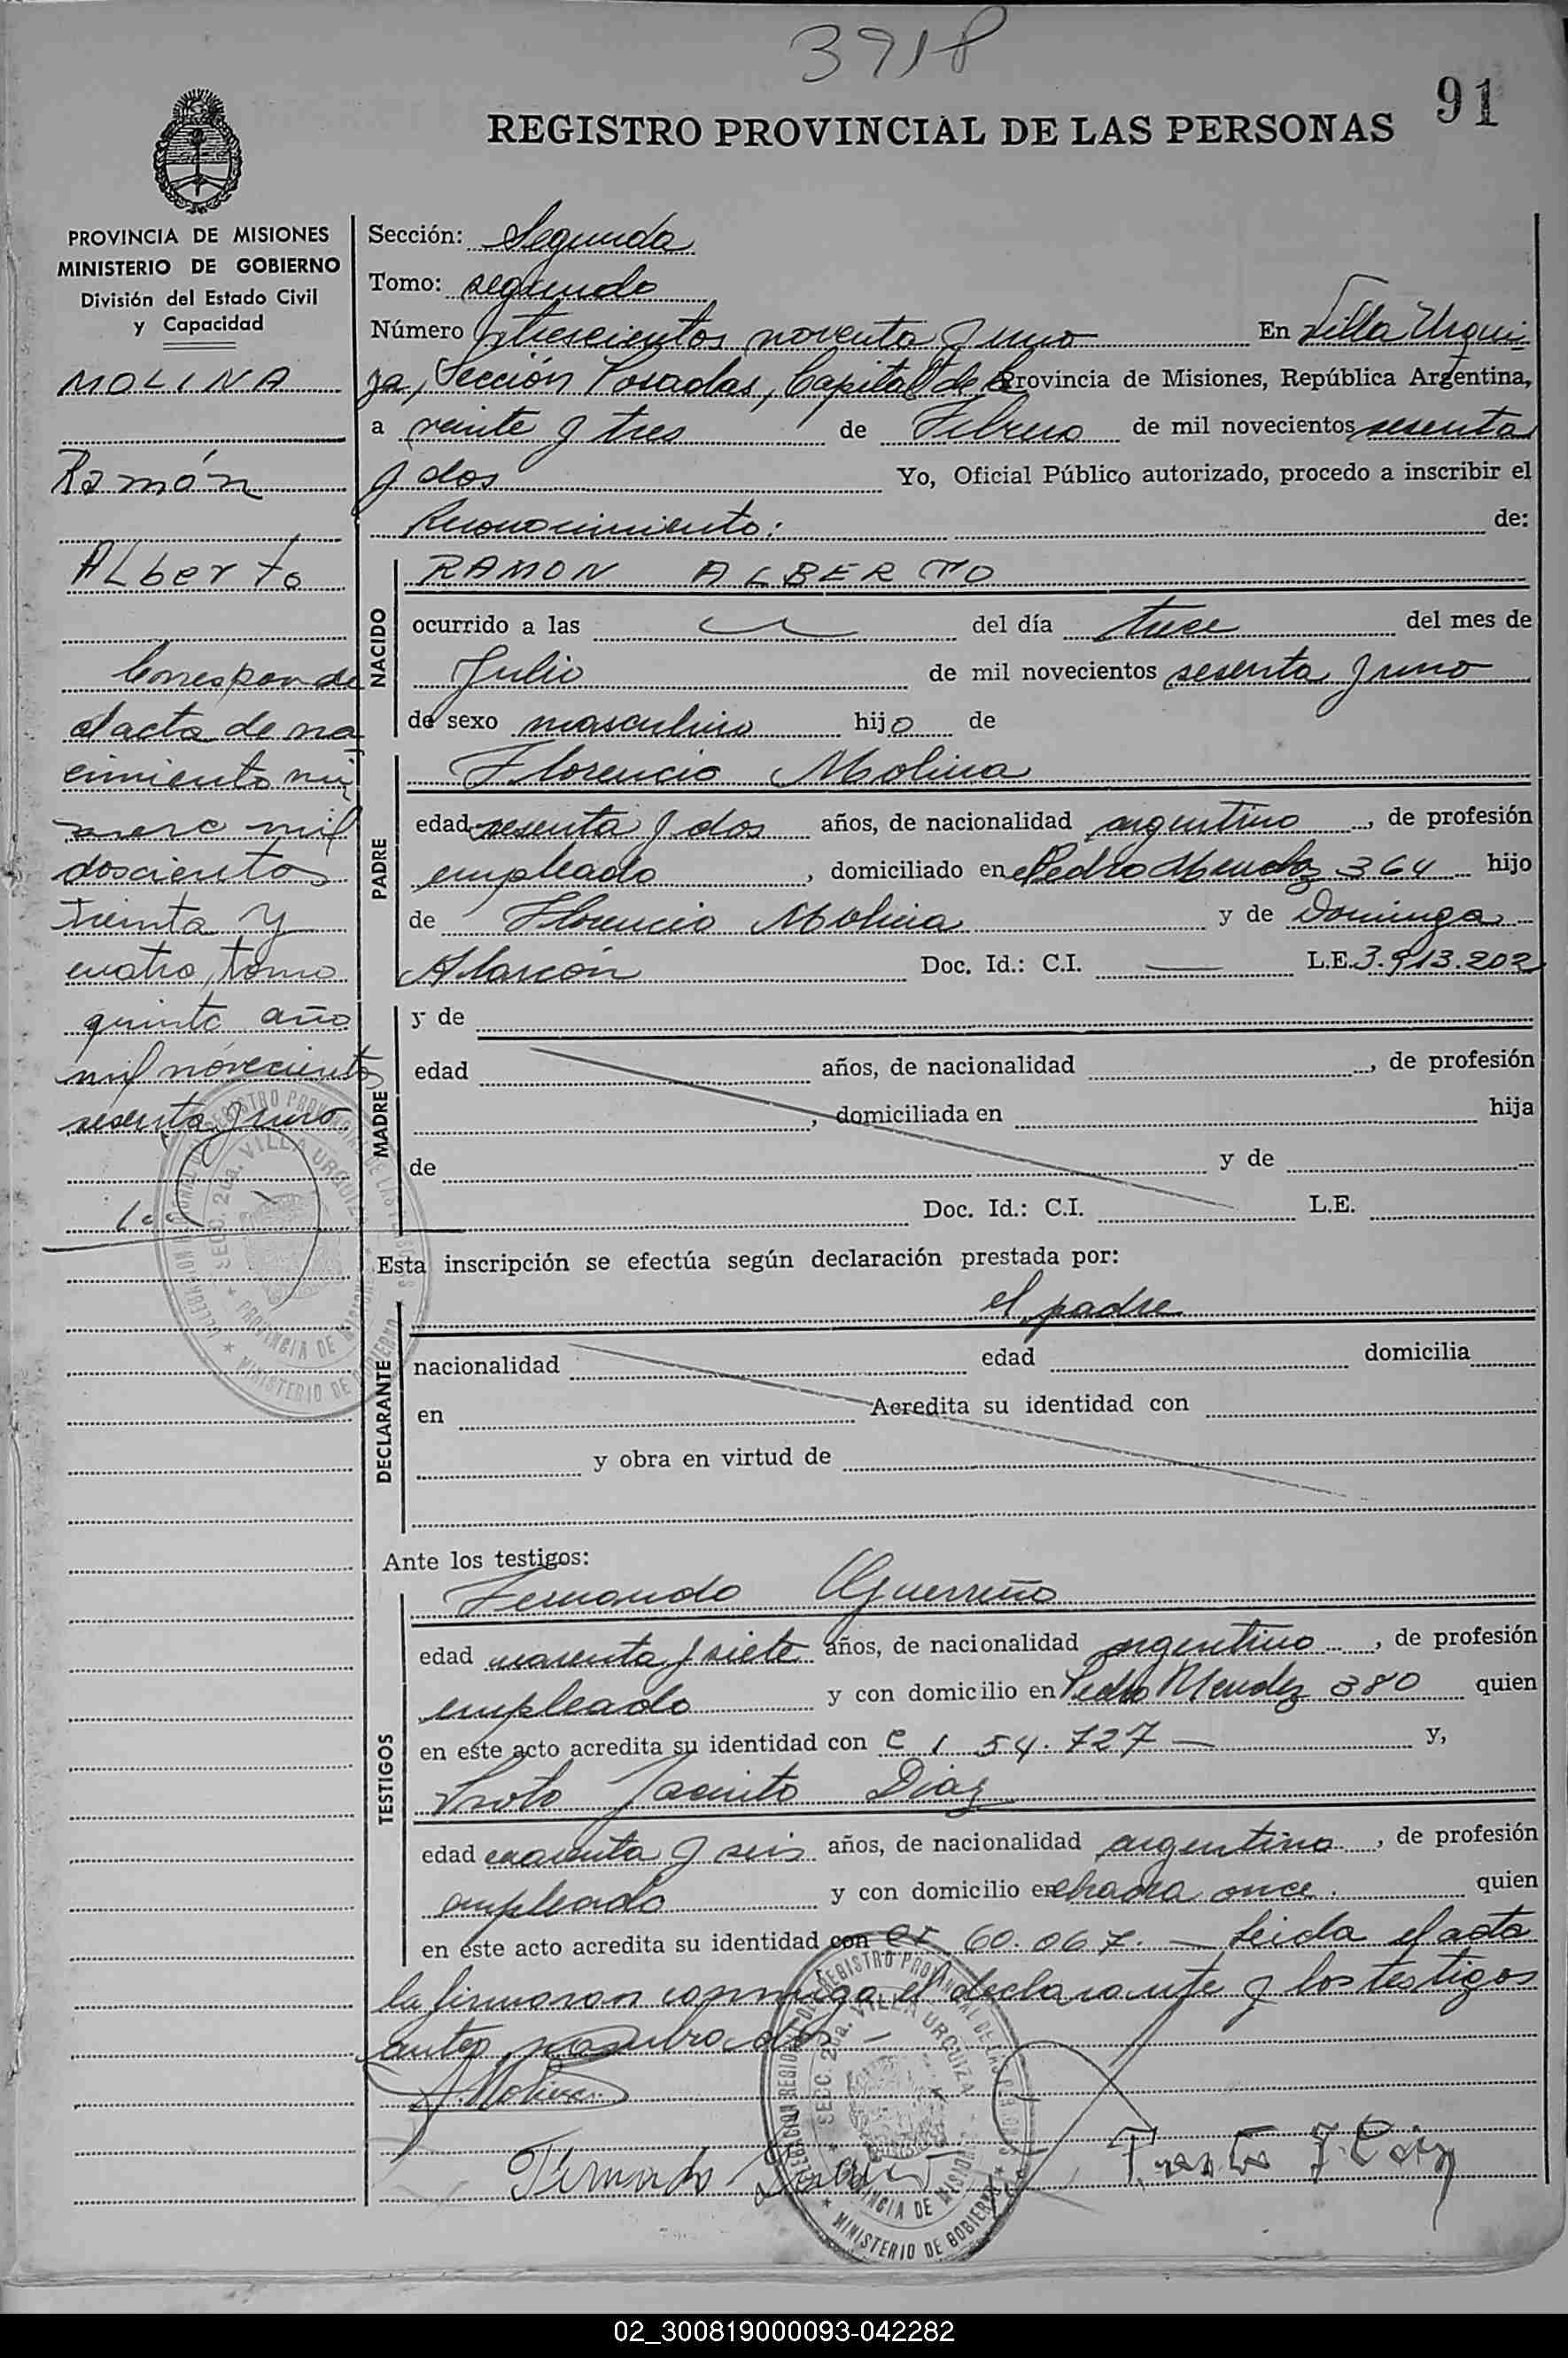 3918
91
REGISTRO PROVINCIAL DE LAS PERSONAS
PROVINCIA DE MISIONES
MINISTERIO DE GOBIERNO
División del Estado Civil
y Capacidad
MOLINA
Ramón
ALberto
Corresponde
al acta de na
cimiento nú
mero mil
doscientos
treinta y
cuatro, tomo
quinto año
mil novecientos
sesenta y uno.
Sección: Segunda
Tomo: segundo
Número trescientos noventa y uno En Villa Urqui
za, Sección Posadas, Capital de la Provincia de Misiones, República Argentina,
a veinte y tres de Febrero de mil novecientos sesenta
y dos Yo, Oficial Público autorizado, procedo a inscribir el
Reconocimiento: de:
NACIDO
RAMON ALBERTO
ocurrido a las del día trece del mes de
Julio de mil novecientos sesenta y uno
de sexo masculino hijo de
PADRE
Florencio Molina
edad sesenta y dos años, de nacionalidad argentino, de profesión
empleado, domiciliado en Pedro Mendez 364 hijo
de Florencio Molina y de Dominga
Alarcón Doc. Id.: C.I. — L.E. 3.913.202
MADRE
y de
edad años, de nacionalidad , de profesión
, domiciliada en hija
de y de
Doc. Id.: C.I. L.E.
Esta inscripción se efectúa según declaración prestada por:
el padre
DECLARANTE
nacionalidad edad domicilia
en Acredita su identidad con
y obra en virtud de
Ante los testigos:
TESTIGOS
Fernando Guerreño
edad cuarenta y siete años, de nacionalidad argentino, de profesión
empleado y con domicilio en Pedro Mendez 380 quien
en este acto acredita su identidad con C I 54.727 — y,
Jacinto Diaz
edad cuarenta y seis años, de nacionalidad argentino, de profesión
empleado y con domicilio en chacra once. quien
en este acto acredita su identidad con CI 60.067. — Leida el acta
la firmaron conmigo el declarante y los testigos
antes nombrados
Molina
DELEGACION REGIONAL DEL REGISTRO PROVINCIAL DE LAS PERSONAS
SECC. 2da. VILLA URQUIZA
PROVINCIA DE MISIONES
MINISTERIO DE GOBIERNO
02_300819000093-042282